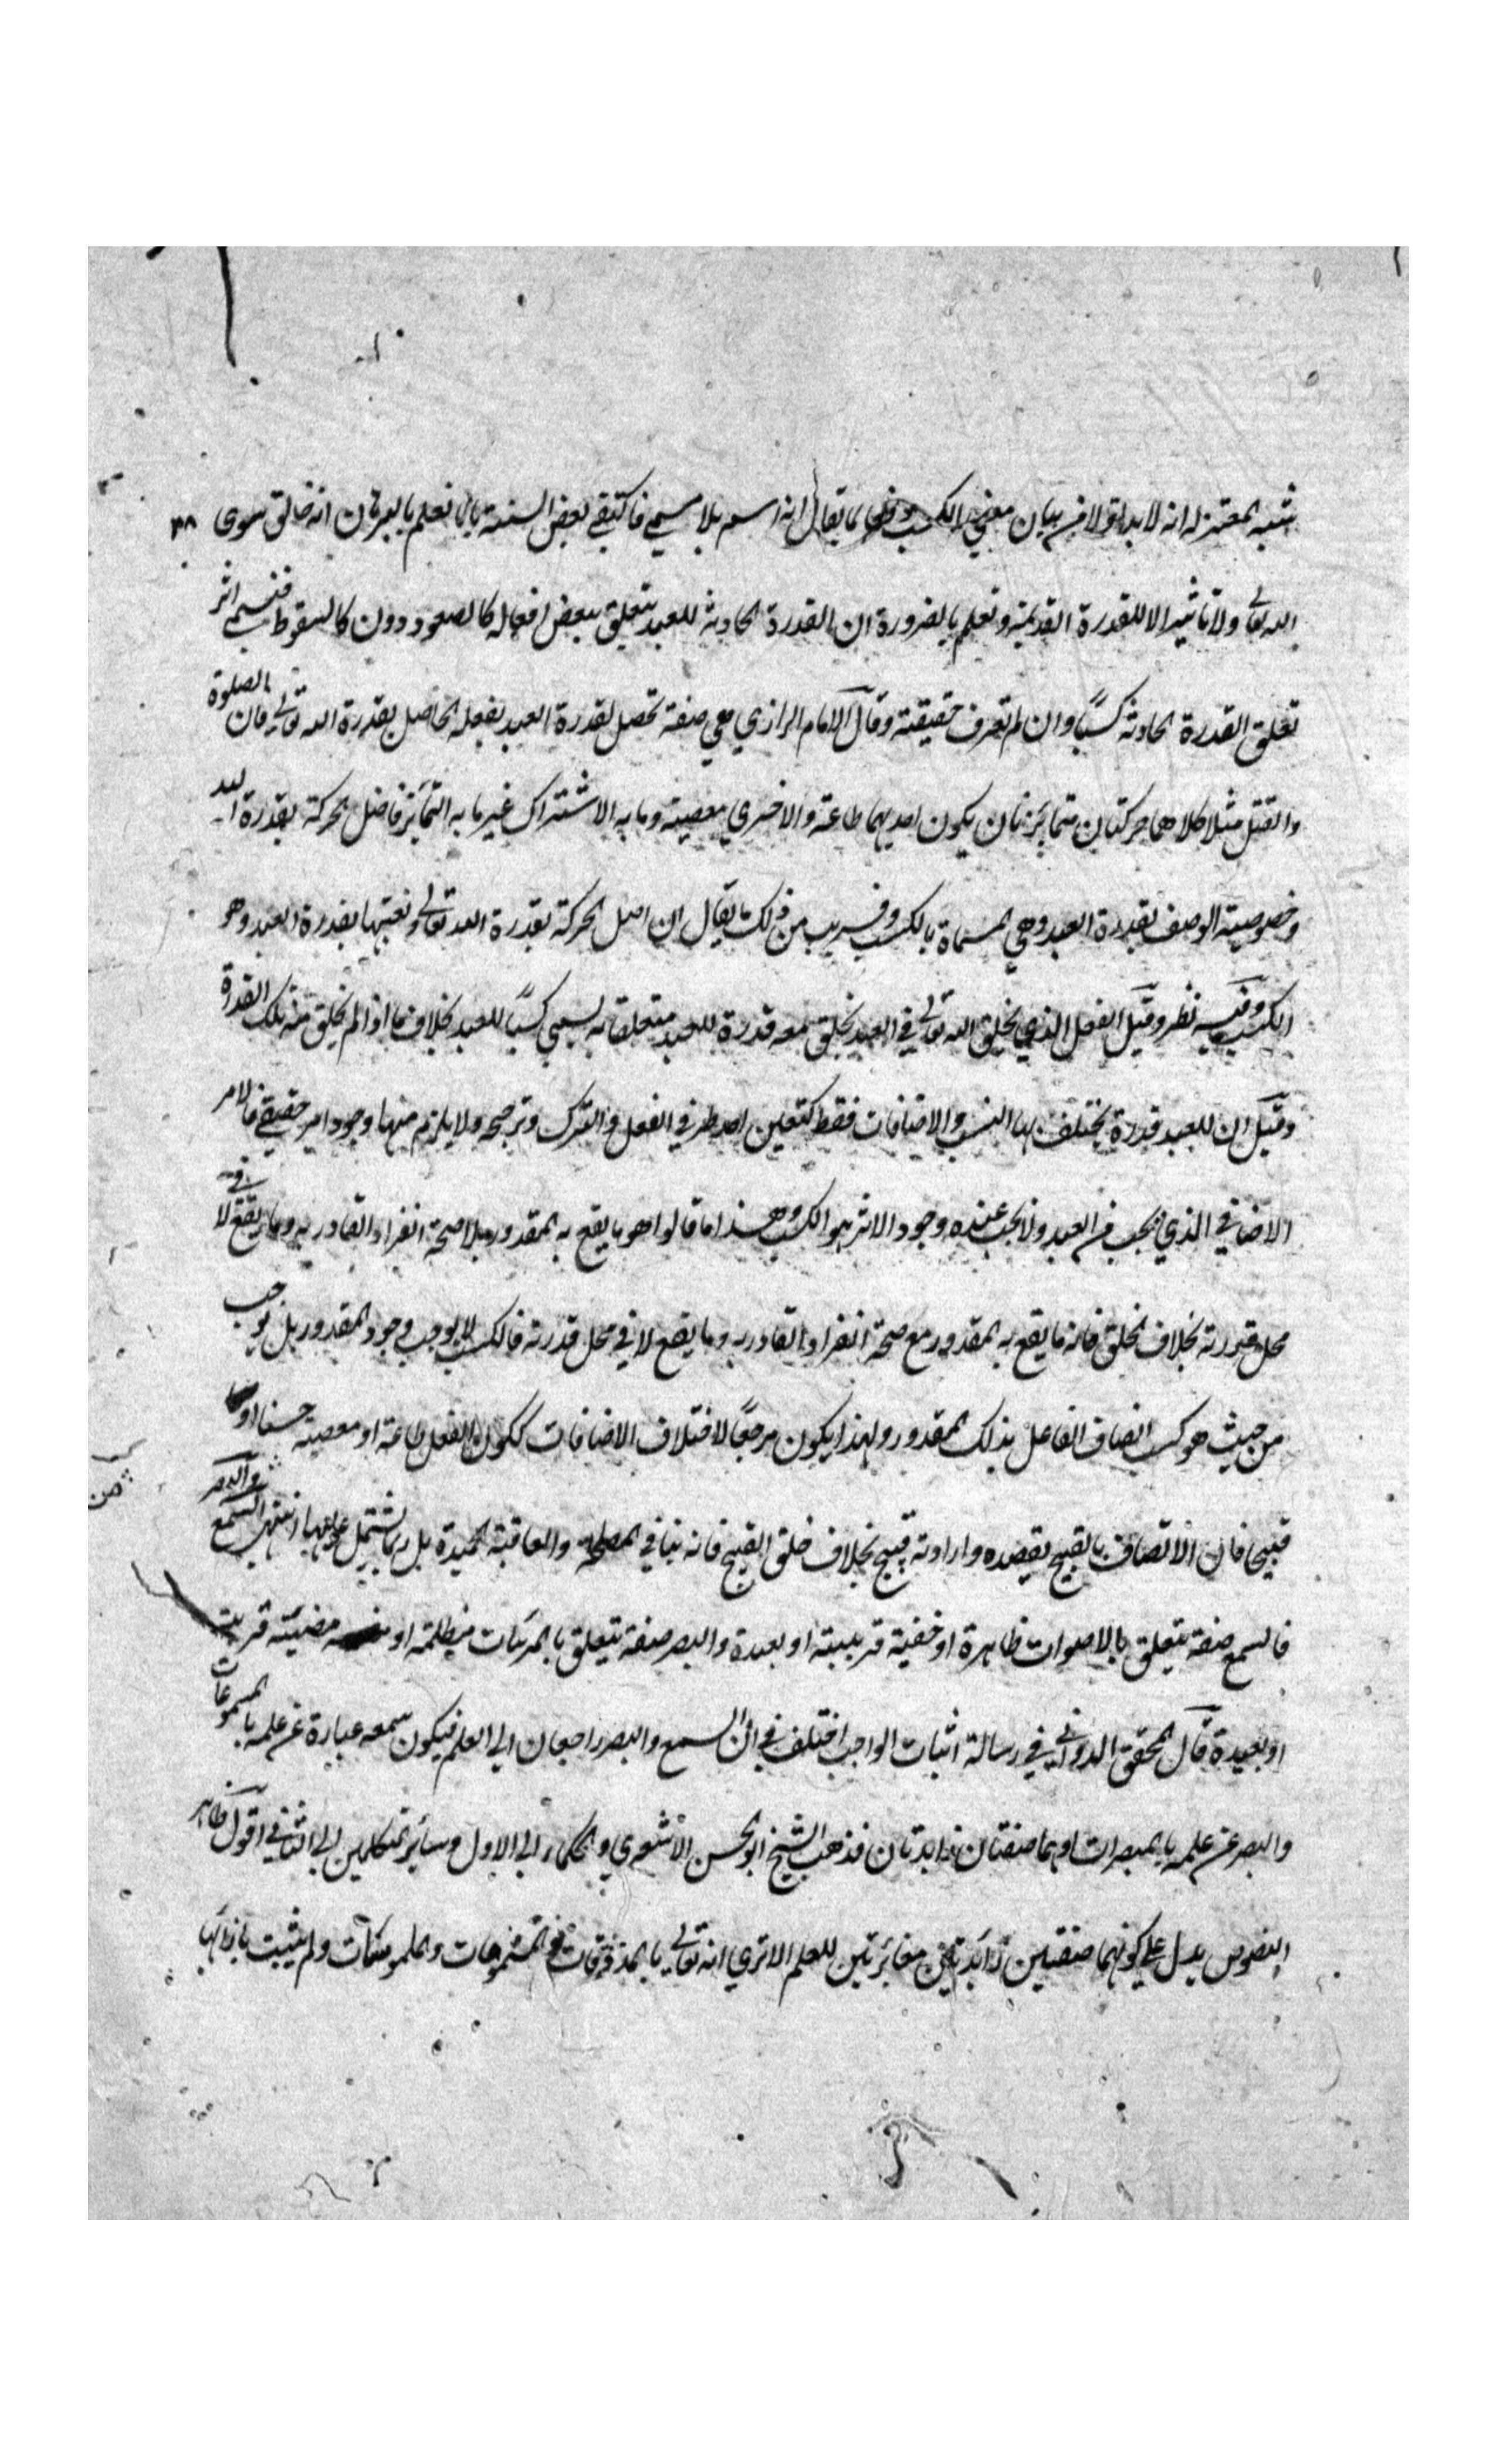 شبه المعتزلة انه لا بد اولا من بيان معنى الكسب دفعا لما يقال انه اسم بلا مسمى فاكتفى بعض السنة بانا نعلم بالبرهان انه خالق سوى ٣٨
الله تعالى ولا تاثير الا للقدرة القديمة ونعلم بالضرورة ان القدرة الحادثة للعبد يتعلق ببعض افعاله كالصعود دون كالسقوط فنسمى اثر
تعلق القدرة الحادثة كسبًا وان لم تعرف حقيقته وقال الامام الرازي هي صفة تحصل بقدرة العبد بفعله الحاصل بقدرة الله تعالى فان الصلوة
والقتل مثلا كلاهما حركتان متمايزتان يكون احديهما طاعة والاخرى معصية وما به الاشتراك غير ما به التمايز فاصل الحركة بقدرة الله
وخصوصية الوصف بقدرة العبد وهي المسماة بالكسب وقريب من ذلك ما يقال ان اصل الحركة بقدرة الله تعالى وتعينها بقدرة العبد وهو
الكسب وفيه نظر وقيل الفعل الذي يخلق الله تعالى في العبد يخلق معه قدرة للعبد متعلقا به يسمى كسبًا للعبد بخلاف ما اذا لم يخلق منه تلك القدرة
وقيل ان للعبد قدرة يختلف بها النسب والاضافات فقط كتعين احد طرفي الفعل والترك وترجحه ولا يلزم منها وجود امر حقيقي فالامر
الاضافي الذي يجب من العبد ولا يجب عنده وجود الاثر هو الكسب وهذا ما قالوا هو ما يقع به المقدور بلا صحة انفراد القادر به وما يقع لا في
محل قدرته بخلاف الخلق فانه ما يقع به المقدور مع صحة انفراد القادر به وما يقع لا في محل قدرته فالكسب لا يوجب وجود المقدور بل يوجب
من حيث هو كسب اتصاف الفاعل بذلك المقدور ولهذا يكون مرجعًا لاختلاف الاضافات ككون الفعل طاعة او معصية حسنا او
قبيحا فان الاتصاف بالقبيح بقصده وارادته قبيح بخلاف خلق القبيح فانه ينافي المصلحة والعاقبة الحميدة بل ربما يشتمل عليها انتهى السمع والبصر
فالسمع صفة يتعلق بالاصوات ظاهرة او خفية قريبة او بعيدة والبصر صفة يتعلق بالمرئيات مظلمة او مضيئة قريبة
او بعيدة قال المحقق الدواني في رسالة اثبات الواجب اختلف في ان السمع والبصر راجعان الى العلم فيكون سمعه عبارة عن علمه بالمسموعات
والبصر عن علمه بالمبصرات او هما صفتان زايدتان فذهب الشيخ ابو الحسن الاشعري والحكماء الى الاول وسائر المتكلمين الى الثاني اقول ظاهر
النصوص يدل على كونهما صفتين زائدتين مغائرتين للعلم الا ترى انه تعالى بالمذوقات والمشمومات والملموسات ولم يثبت بازائها